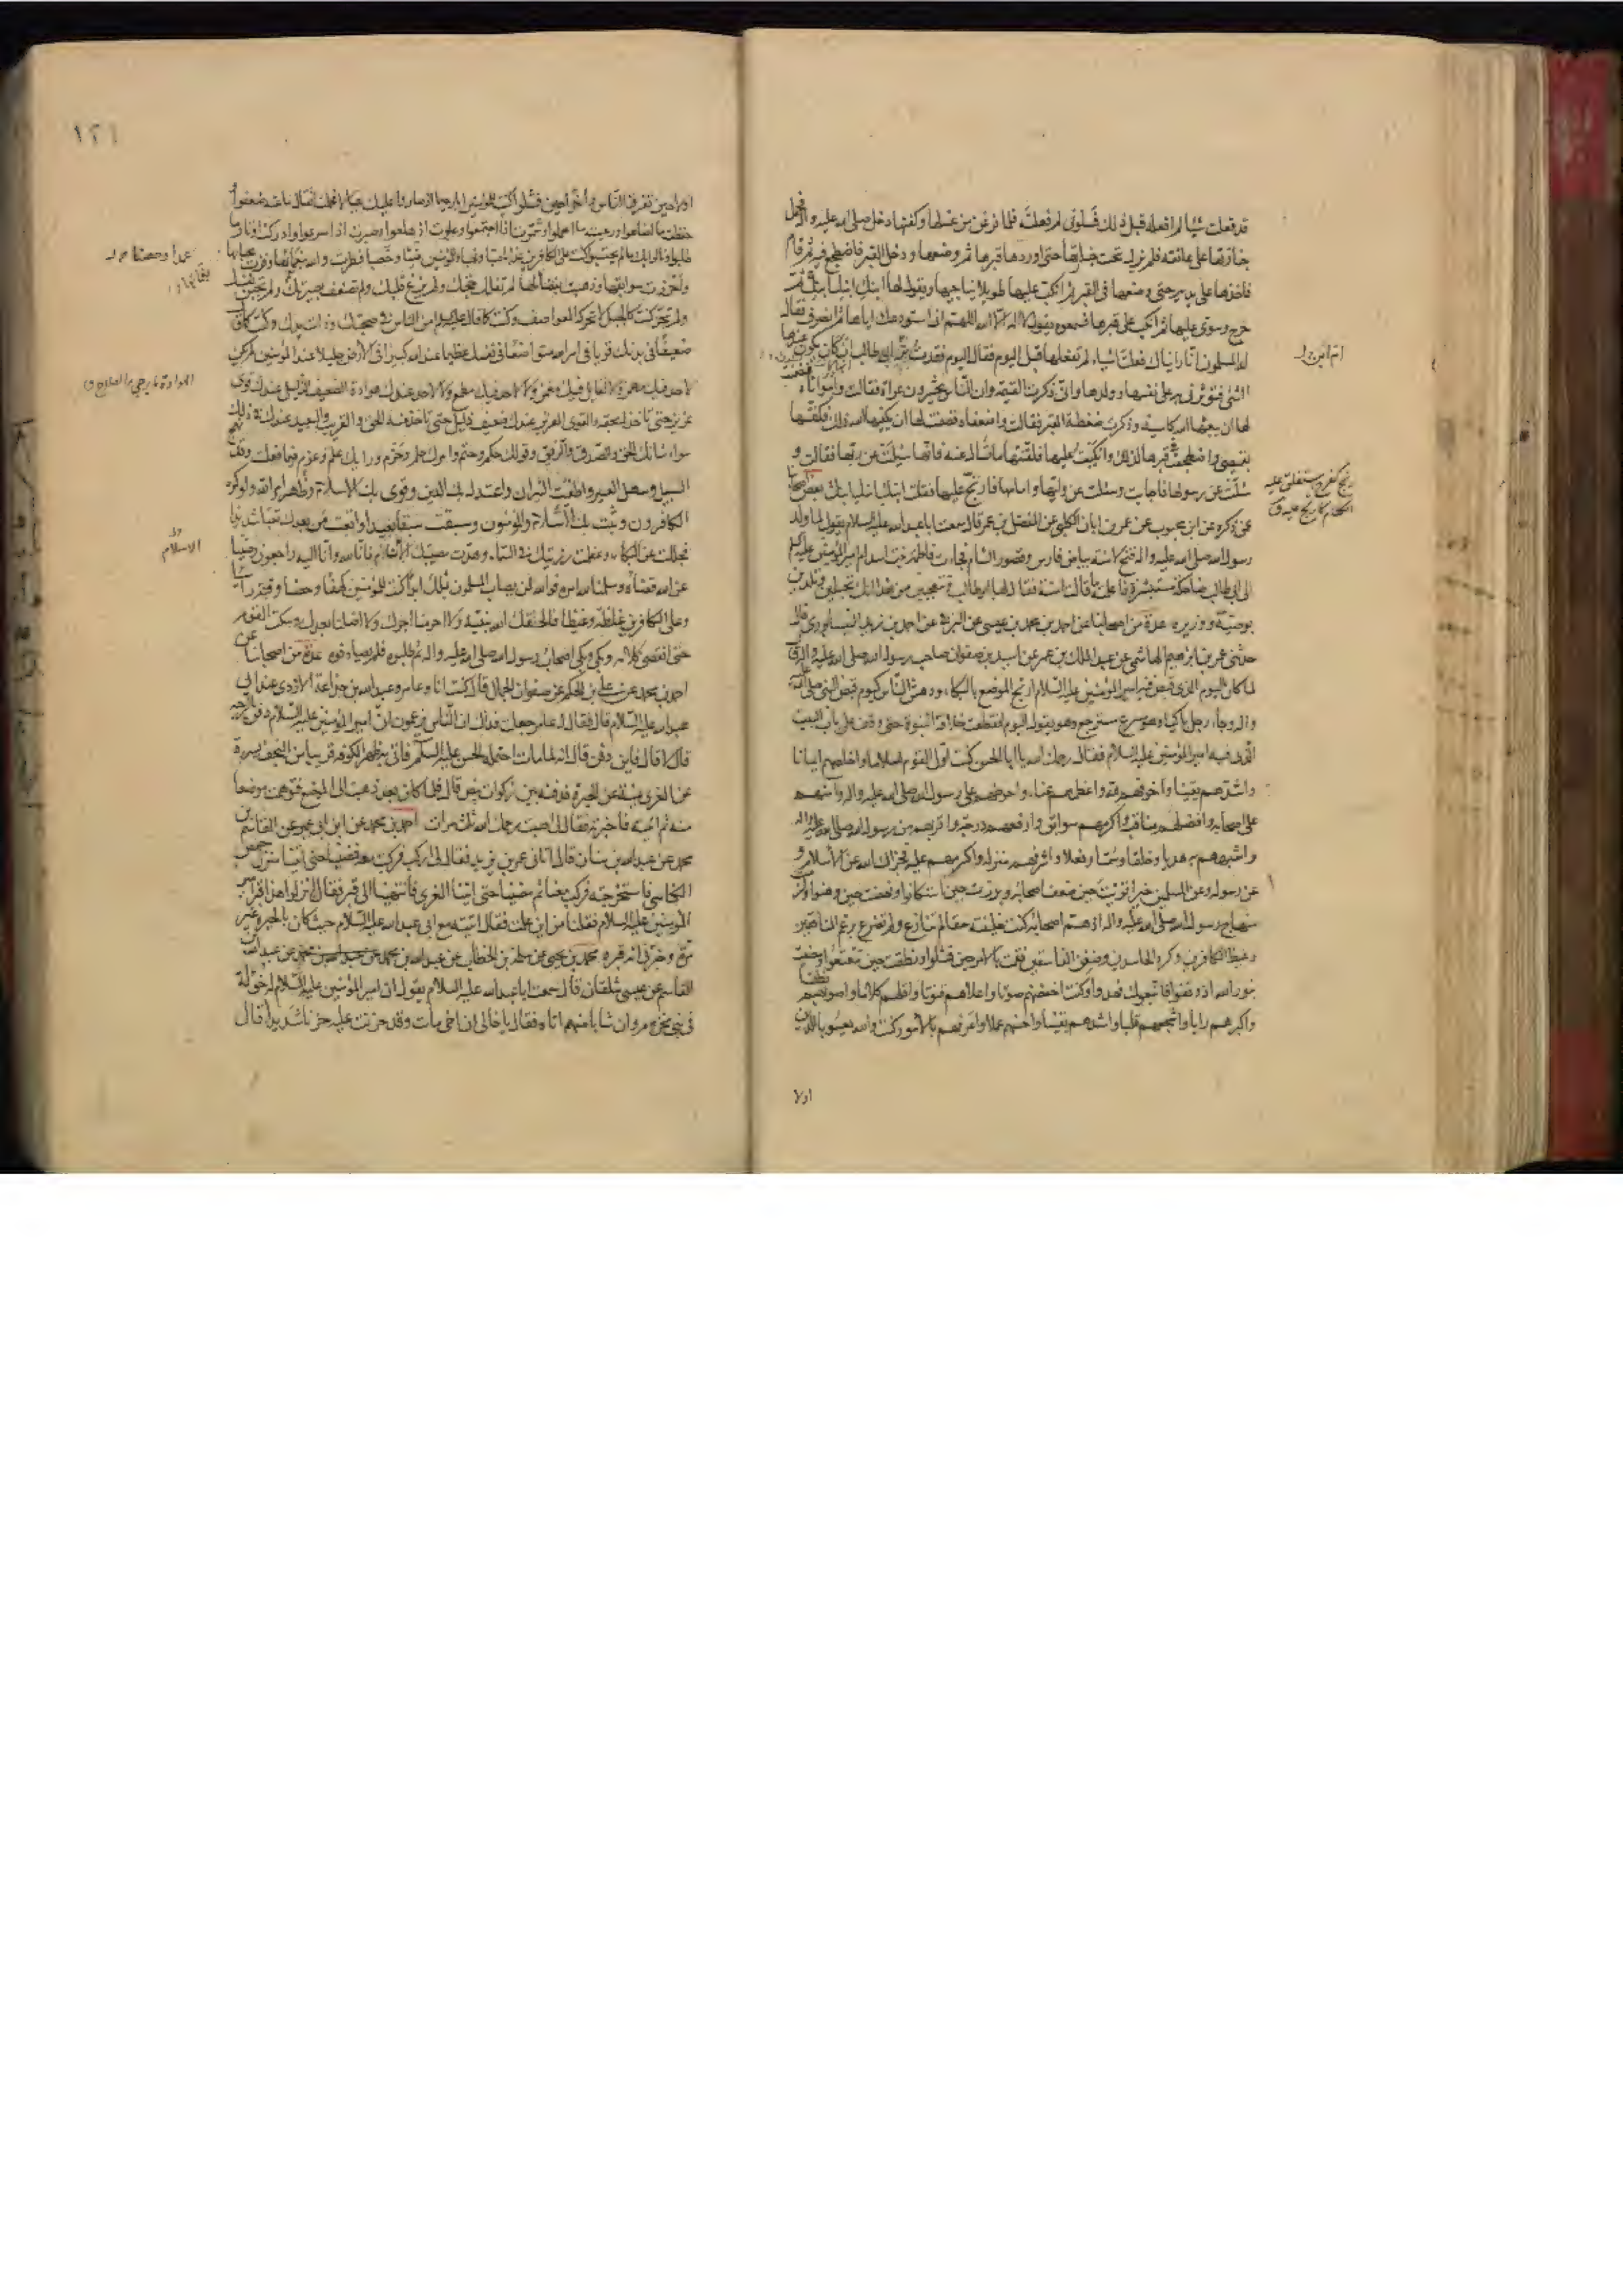 قد فعلت شيئا لم افعله قبل ذلك فسلونى لم فعلته فلما فرغن من غسلها وكفنها دخل صلى الله عليه واله فحمل
جنازتها على عاتقه فلم يزل تحت جنازتها حتى اوردها قبرها ثم وضعها ودخل القبر فاضطجع فيه ثم قام
فاخذها على يديه حتى وضعها فى القبر ثم انكب عليها طويلا يناجيها ويقول لها ابنك ابنك ابنك ثم
خرج وسوى عليها ثم انكب على قبرها فسمعوه يقول لا اله الا الله اللهم انى استودعك اياها ثم انصرف فقال
له المسلمون انا رايناك فعلت اشياء لم تفعلها قبل اليوم فقال اليوم فقدت بر ابى طالب ان كان يكون عندها
الشئ فتؤثرنى به على نفسها وولدها وانى ذكرت القيمة وان الناس يحشرون عراة فقالت واسوأتاه
لها ان يبعثها الله كاسية وذكرت ضغطة القبر فقالت واضعفاه فضمنت لها ان يكفيها الله ذلك فكفنتها
بقميصى واضطجعت فى قبرها لذلك وانكببت عليها فلقنتها ما تسأل عنه فانها سئلت عن ربها فقالت و
سئلت عن رسولها فاجابت وسئلت عن وليها وامامها فارتج عليها فقلت ابنك ابنك ابنك بعض اصحابنا
عمن ذكره عن ابن محبوب عن عمر بن ابان الكلبى عن المفضل بن عمر قال سمعت ابا عبد الله عليه السلام يقول لما ولد
رسول الله صلى الله عليه واله فتح لآمنة بياض فارس وقصور الشام فجاءت فاطمة بنت اسد ام امير المؤمنين عليه السلم
الى ابى طالب ضاحكة مستبشرة فاعلمته ما قالت امنة فقال لها ابو طالب وتتعجبين من هذا انك تحبلين وتلدين
بوصيه ووزيره عدة من اصحابنا عن احمد بن محمد بن عيسى عن البرقى عن احمد بن زيد النيسابورى قال
حدثنى عمر بن ابراهيم الهاشمى عن عبد الملك بن عمر عن اسيد بن صفوان صاحب رسول الله صلى الله عليه واله قال
لما كان اليوم الذى قبض فيه امير المؤمنين عليه السلام ارتج الموضع بالبكاء ودهش الناس كيوم قبض النبى صلى الله عليه
واله وجاء رجل باكيا وهو مسرع مسترجع وهو يقول اليوم انقطعت خلافة النبوة حتى وقف على باب البيت
الذى فيه امير المؤمنين عليه السلام فقال رحمك الله يا ابا الحسن كنت اول القوم اسلاما واخلصهم ايمانا
واشدهم يقينا واخوفهم لله واعظمهم عناء واحوطهم على رسول الله صلى الله عليه واله وامنهم
على اصحابه وافضلهم مناقب واكرمهم سوابق وارفعهم درجة واقربهم من رسول الله صلى الله عليه واله
واشبههم به هديا وخلقا وسمتا وفعلا واشرفهم منزلة واكرمهم عليه فجزاك الله عن الاسلام و
عن رسوله وعن المسلمين خيرا قويت حين ضعف اصحابه وبرزت حين استكانوا ونهضت حين وهنوا ولزمت
منهاج رسول الله صلى الله عليه واله اذ هم اصحابه كنت خليفته حقا لم تنازع ولم تضرع برغم المنافقين
وغيظ الكافرين وكره الحاسدين وضغن الفاسقين فقمت بالامر حين فشلوا ونطقت حين تتعتعوا ومضيت
بنور الله اذ وقفوا فاتبعوك فهدوا وكنت اخفضهم صوتا واعلاهم قنوتا واقلهم كلاما واصوبهم نطقا
واكبرهم رايا واشجعهم قلبا واشدهم يقينا واحسنهم عملا واعرفهم بالامور كنت والله يعسوبا للدين
اولا
ام ابن
١٢١
اولا حين تفرق الناس واخرا حين فشلوا كنت للمؤمنين ابا رحيما اذ صاروا عليك عيالا فحملت اثقال ما عنه ضعفوا
وحفظت ما اضاعوا ورعيت ما اهملوا وشمرت اذا اجتمعوا وعلوت اذ هلعوا وصبرت اذ اسرعوا وادركت اوتار ما
طلبوا ونالوا بك ما لم يحتسبوا كنت على الكافرين عذابا صبا ونهبا وللمؤمنين غيثا وخصبا فطرت والله بنعمائها وفزت بحبائها
واحرزت سوابقها وذهبت بفضائلها لم تفلل حجتك ولم يزغ قلبك ولم تضعف بصيرتك ولم تجبن نفسك
ولم تخر كنت كالجبل لا تحركه العواصف وكنت كما قال عليه السلم امن الناس فى صحبتك وذات يدك وكنت كما قال
ضعيفا فى بدنك قويا فى امر الله متواضعا فى نفسك عظيما عند الله كبيرا فى الارض جليلا عند المؤمنين لم يكن
لاحد فيك مهمز ولا لقائل فيك مغمز ولا لاحد فيك مطمع ولا لاحد عندك هوادة الضعيف الذليل عندك قوى
عزيز حتى تاخذ له بحقه والقوى العزيز عندك ضعيف ذليل حتى تاخذ منه الحق والقريب والبعيد عندك فى ذلك
سواء شانك الحق والصدق والرفق وقولك حكم وحتم وامرك حلم وحزم ورايك علم وعزم فيما فعلت وقد نهج
السبيل وسهل العسير واطفئت النيران واعتدل بك الدين وقوى بك الاسلام وظهر امر الله ولو كره
الكافرون وثبت بك الاسلام والمؤمنون وسبقت سبقا بعيدا واتعبت من بعدك تعبا شديدا
فجللت عن البكاء وعظمت رزيتك فى السماء وهدت مصيبتك الانام فانا لله وانا اليه راجعون رضينا
عن الله قضاه وسلمنا لله امره فوالله لن يصاب المسلمون بمثلك ابدا كنت للمؤمنين كهفا وحصنا وقنة راسيا
وعلى الكافرين غلظة وغيظا فالحقك الله بنبيه ولا احرمنا اجرك ولا اضلنا بعدك وسكت القوم
حتى انقضى كلامه وبكى وبكى اصحاب رسول الله صلى الله عليه واله ثم طلبوه فلم يصادفوه عدة من اصحابنا عن
احمد بن محمد عن على بن الحكم عن صفوان الجمال قال كنت انا وعامر وعبد الله بن جذاعة الازدى عند ابى
عبد الله عليه السلام قال فقال له عامر جعلت فداك ان الناس يزعمون ان امير المؤمنين عليه السلام دفن بالرحبة
قال لا قال فاين دفن قال انه لما مات احتمله الحسن عليه السلم فاتى به ظهر الكوفة قريبا من النجف يسرة
عن الغرى يمنة عن الحيرة فدفنه بين زكوات بيض قال فلما كان بعد ذهبت الى الموضع فتوهمت موضعا
منه ثم اتيته فاخبرته فقال لى اصبت رحمك الله ثلث مرات احمد بن محمد عن ابن ابى عمير عن القاسم بن
محمد عن عبد الله بن سنان قال اتانى عمر بن يزيد فقال لى اركب فركبت معه فمضينا حتى اتينا منزل حفص
الكناسى فاستخرجته فركب معنا ثم مضينا حتى اتينا الغرى فانتهينا الى قبر فقال انزلوا هذا قبر امير
المؤمنين عليه السلام فقلنا من اين علمت فقال اتيته مع ابى عبد الله عليه السلام حيث كان بالحيرة غير
مرة وخبرنى انه قبره محمد بن يحيى عن سلمة بن الخطاب عن عبد الله بن محمد عن عبد الله بن
القاسم عن عيسى شلقان قال سمعت ابا عبد الله عليه السلام يقول ان امير المؤمنين عليه السلام له خؤلة
فى بنى مخزوم وان شابا منهم اتاه فقال يا خالى ان اخى مات وقد حزنت عليه حزنا شديدا قال
الاسلام